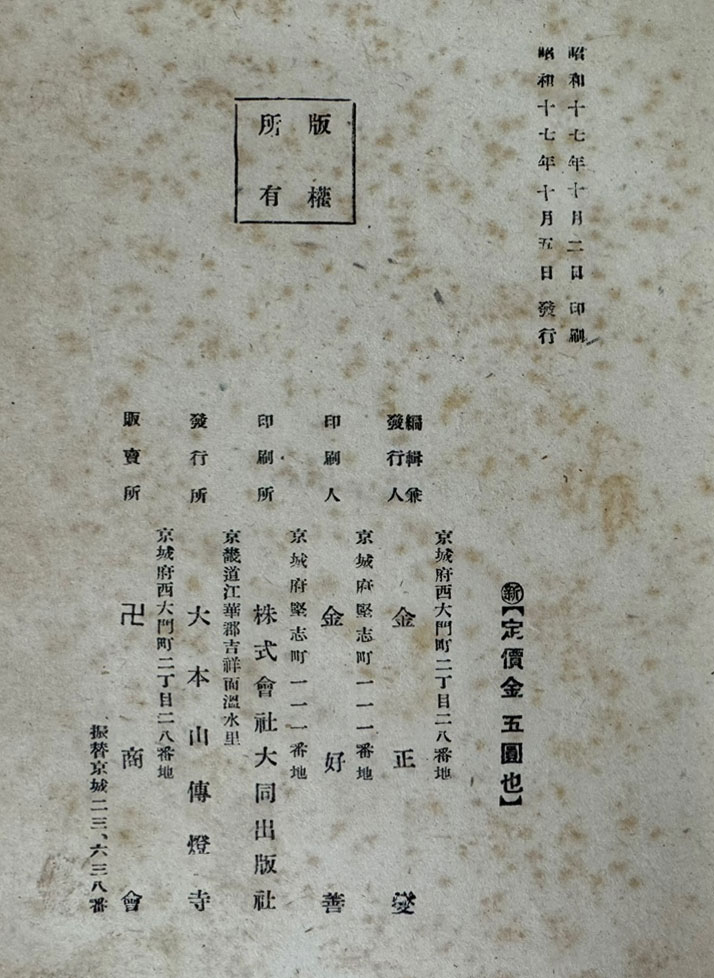 昭和十七年十月二日 印刷
昭和十七年十月五日 發行
版權
所有
㊟【定價金 五圓也】
京城府西大門町二丁目二八番地
編輯兼
發行人 金正
京城府堅志町一一一番地
印刷人 金好善
京城府堅志町一一一番地
印刷所 株式會社大同出版社
京畿道江華郡吉祥面溫水里
發行所 大本山傳燈寺
京城府西大門町二丁目二八番地
販賣所 卍商會
振替京城二三、六三八番